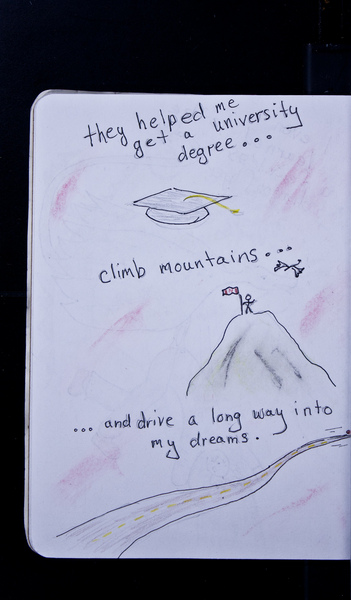 they helped me
get a university
degree...
climb mountains...
... and drive a long way into
my dreams.